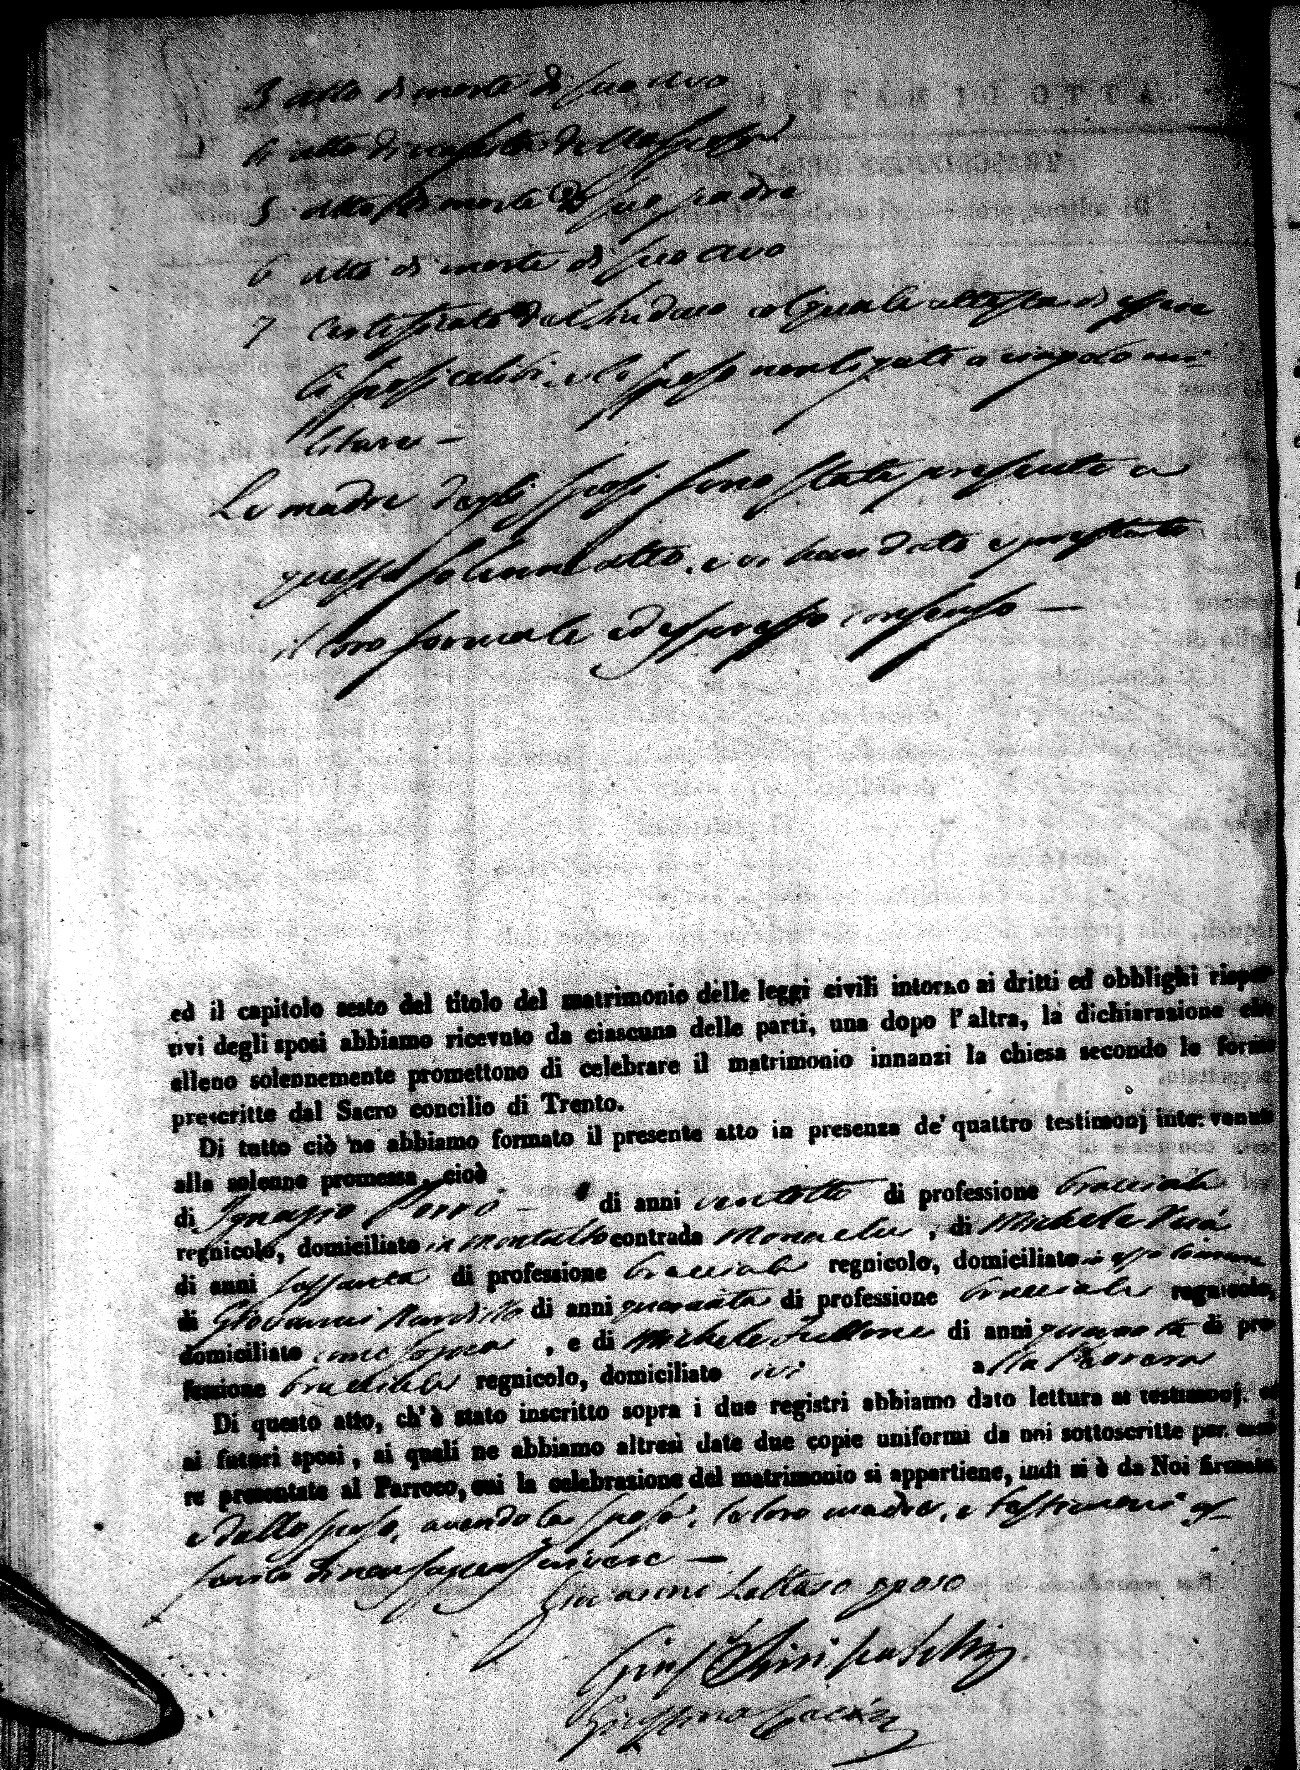 3 atto di morte di suo avo
4 atto di nascita della sposa
5 atto di morte di suo padre
6 atto di morte di suo avo
7 Certificato del Sindaco col quale attesta di essere
li sposi celibi, e lo sposo non ligato a vincolo mi-
litare —
Le madre degli sposi sono state presente a
questo solenne atto, e vi han dato e prestato
il loro formale ed espresso consenso —
ed il capitolo sesto del titolo del matrimonio delle leggi civili intorno ai dritti ed obblighi rispet-
tivi degli sposi abbiamo ricevuto da ciascuna delle parti, una dopo l'altra, la dichiarazione che
elleno solennemente promettono di celebrare il matrimonio innanzi la chiesa secondo le forme
prescritte dal Sacro concilio di Trento.
Di tutto ciò ne abbiamo formato il presente atto in presenza de' quattro testimonj intervenuti
alla solenne promessa, cioè
di Ignazio Porro — di anni ventotto di professione bracciale
regnicolo, domiciliato in Montalto contrada Monache , di Michele
di anni sessanta di professione bracciale regnicolo, domiciliato in esso comune
di Giovanni di anni quaranta di professione bracciale regnicolo,
domiciliato come sopra , e di Michele Fullone di anni quaranta di pro-
fessione bracciale regnicolo, domiciliato ivi a
Di questo atto, ch'è stato inscritto sopra i due registri abbiamo dato lettura ai testimonj, ed
ai futuri sposi, ai quali ne abbiamo altresì date due copie uniformi da noi sottoscritte per esse-
re presentate al Parroco, cui la celebrazione del matrimonio si appartiene, indi si è da Noi firmato
e dallo sposo, avendo la sposa, le loro madre, e testimoni as-
serito di non sapere scrivere —
Giovanni Lattaro sposo